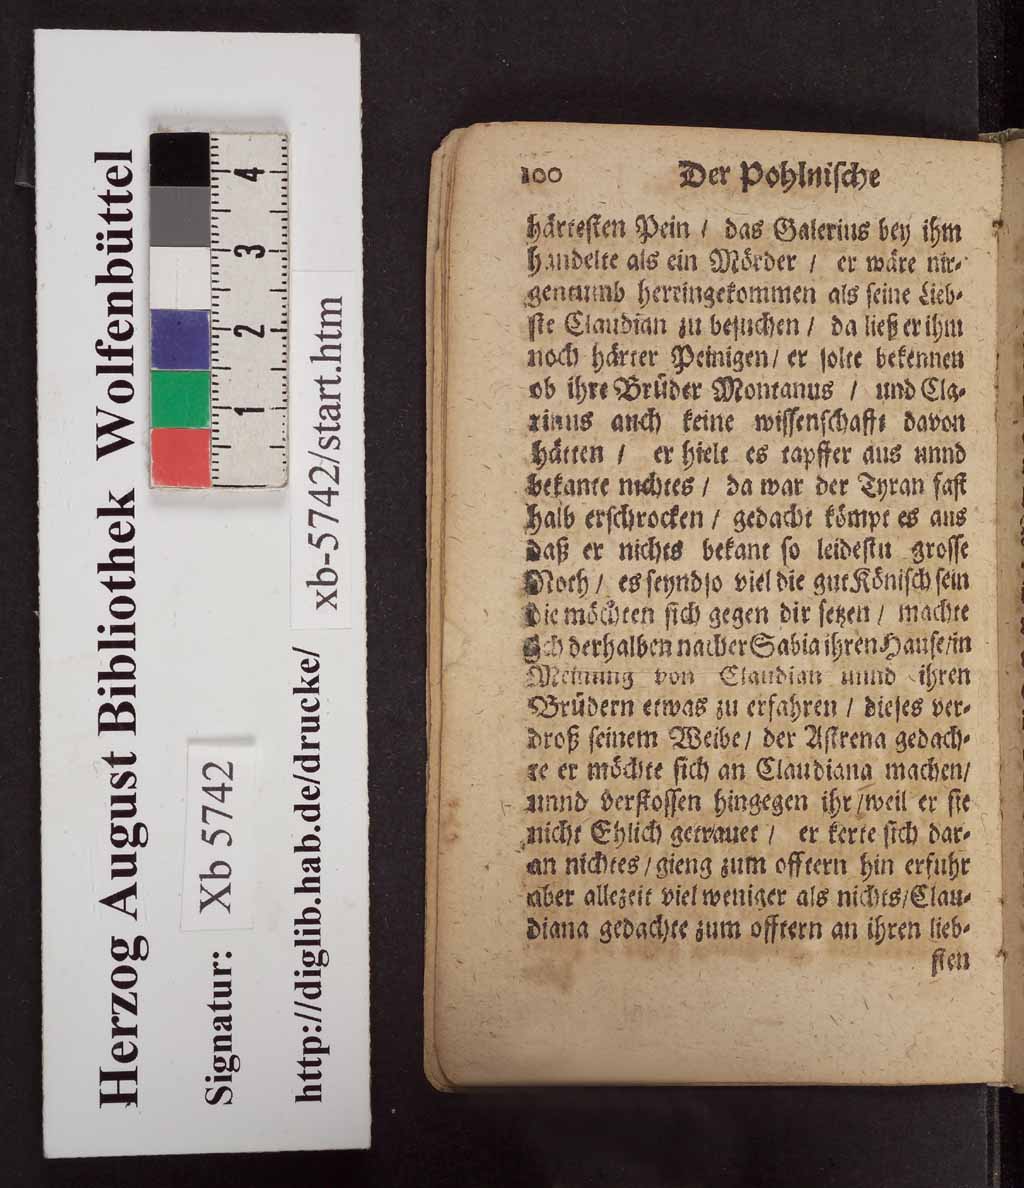 Herzog August Bibliothek Wolfenbüttel
Signatur: Xb 5742
http://diglib.hab.de/drucke/
xb-5742/start.htm
1 2 3 4
100 Der Pohlnische
härtesten Pein / das Galerius bey ihm
handelte als ein Mörder / er wäre nir-
gentumb hereingekommen als seine Lieb-
ste Claudian zu besuchen / da ließ er ihm
noch härter Peinigen / er solte bekennen
ob ihre Brüder Montanus / und Cla-
rinus auch keine wissenschafft davon
hätten / er hielt es tapffer aus unnd
bekante nichtes / da war der Tyran fast
halb erschrocken / gedacht kömpt es aus
daß er nichts bekant so leidestu grosse
Noth / es seynd so viel die gut Könisch sein
die möchten sich gegen dir setzen / machte
sich derhalben nacher Sabia ihren Hause / in
Meinung von Claudian unnd ihren
Brüdern etwas zu erfahren / dieses ver-
droß seinem Weibe / der Astrena gedach-
te er möchte sich an Claudiana machen /
unnd verstossen hingegen ihr / weil er sie
nicht Ehlich getrauet / er kerte sich dar-
an nichtes / gieng zum offtern hin erfuhr
aber allezeit viel weniger als nichts / Clau-
diana gedachte zum offtern an ihren lieb-
sten